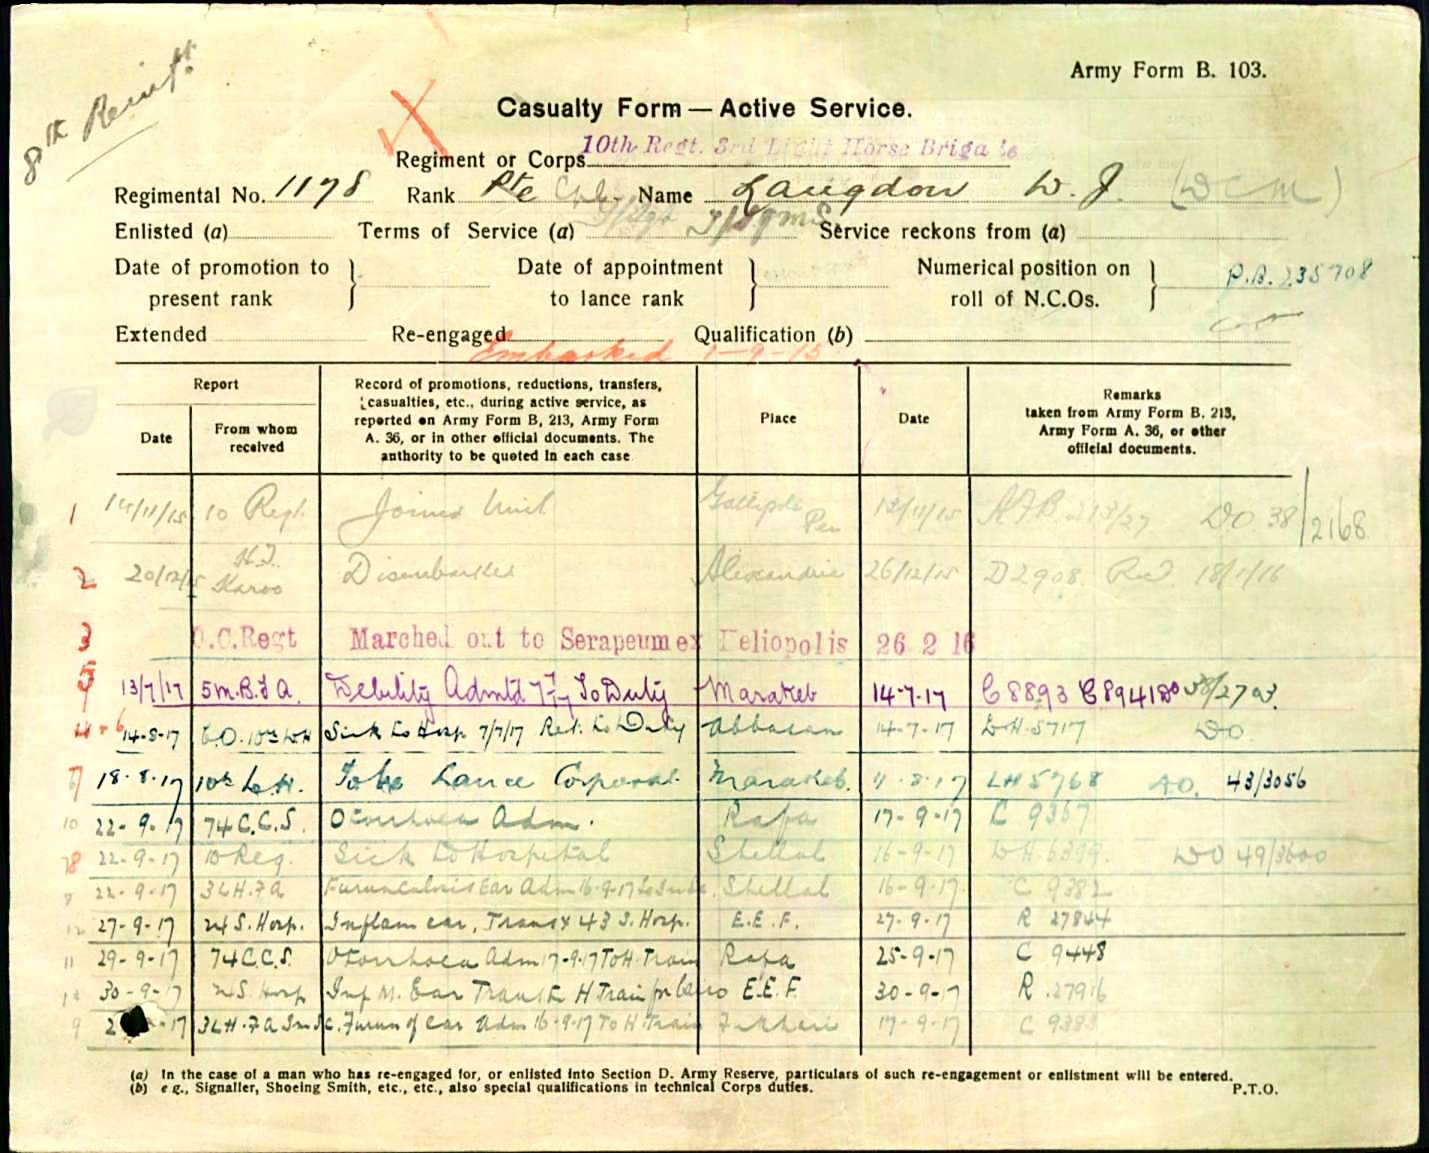 8th Reinft.
Army Form B. 103.
Casualty Form — Active Service.
Regiment or Corps 10th Regt. 3rd Light Horse Brigade
Regimental No. 1178 Rank Pte Cpl. Name Langdon W. J. (DCM)
Enlisted (a) Terms of Service (a) Service reckons from (a)
Date of promotion to present rank } Date of appointment to lance rank } Numerical position on roll of N.C.Os. } P.B. 235708
Extended Re-engaged Qualification (b)
Embarked 1-9-15
Report
Date
From whom received
Record of promotions, reductions, transfers, casualties, etc., during active service, as reported on Army Form B, 213, Army Form A. 36, or in other official documents. The authority to be quoted in each case
Place
Date
Remarks taken from Army Form B. 213, Army Form A. 36, or other official documents.
1 14/11/15 10 Regt Joined Unit Gallipoli Pen 13/11/15 AFB 213/27 DO 38/2168
2 20/12/15 H.T. Karoo Disembarked Alexandria 26/12/15 D2908 18/1/16
3 O.C. Regt Marched out to Serapeum ex Heliopolis 26 2 16
5 13/7/17 5 M.B.F A. Debility Admtd 7/7/17 To Duty Marakeb 14-7-17 C 8893 C 8941
6 14-8-17 C.O. 10th LH Sick to Hosp 7/7/17 Ret. to Duty Abbasan 14-7-17 LH 5717 DO
7 18-8-17 10th L.H. To be Lance Corporal Marakeb. LH 5768 43/3056
10 22-9-17 74 C.C.S. Otorrhoea Adm. Rafa 17-9-17 C 9367
8 22-9-17 10 Reg. Sick to Hospital Shellal 16-9-17 LH 6399. DO 49/3600
22-9-17 3 LH.F A Furunculosis Ear Adm 16-9-17 Shellal 16-9-17 C 9382
12 27-9-17 24 S. Hosp. Inflam ear, Trans 43 S. Hosp. E.E.F. 27-9-17 R 27844
11 29-9-17 74 C.C.S. Otorrhoea Adm 17-9-17 To H. Train Rafa 25-9-17 C 9448
30-9-17 24 S. Hosp Inf M. Ear Trans H Train for Cairo E.E.F. 30-9-17 R 27916
9 3 LH.F A Furun of ear Adm 16-9-17 To H Train 17-9-17 C 9383
(a) In the case of a man who has re-engaged for, or enlisted into Section D. Army Reserve, particulars of such re-engagement or enlistment will be entered.
(b) e g., Signaller, Shoeing Smith, etc., etc., also special qualifications in technical Corps duties.
P.T.O.